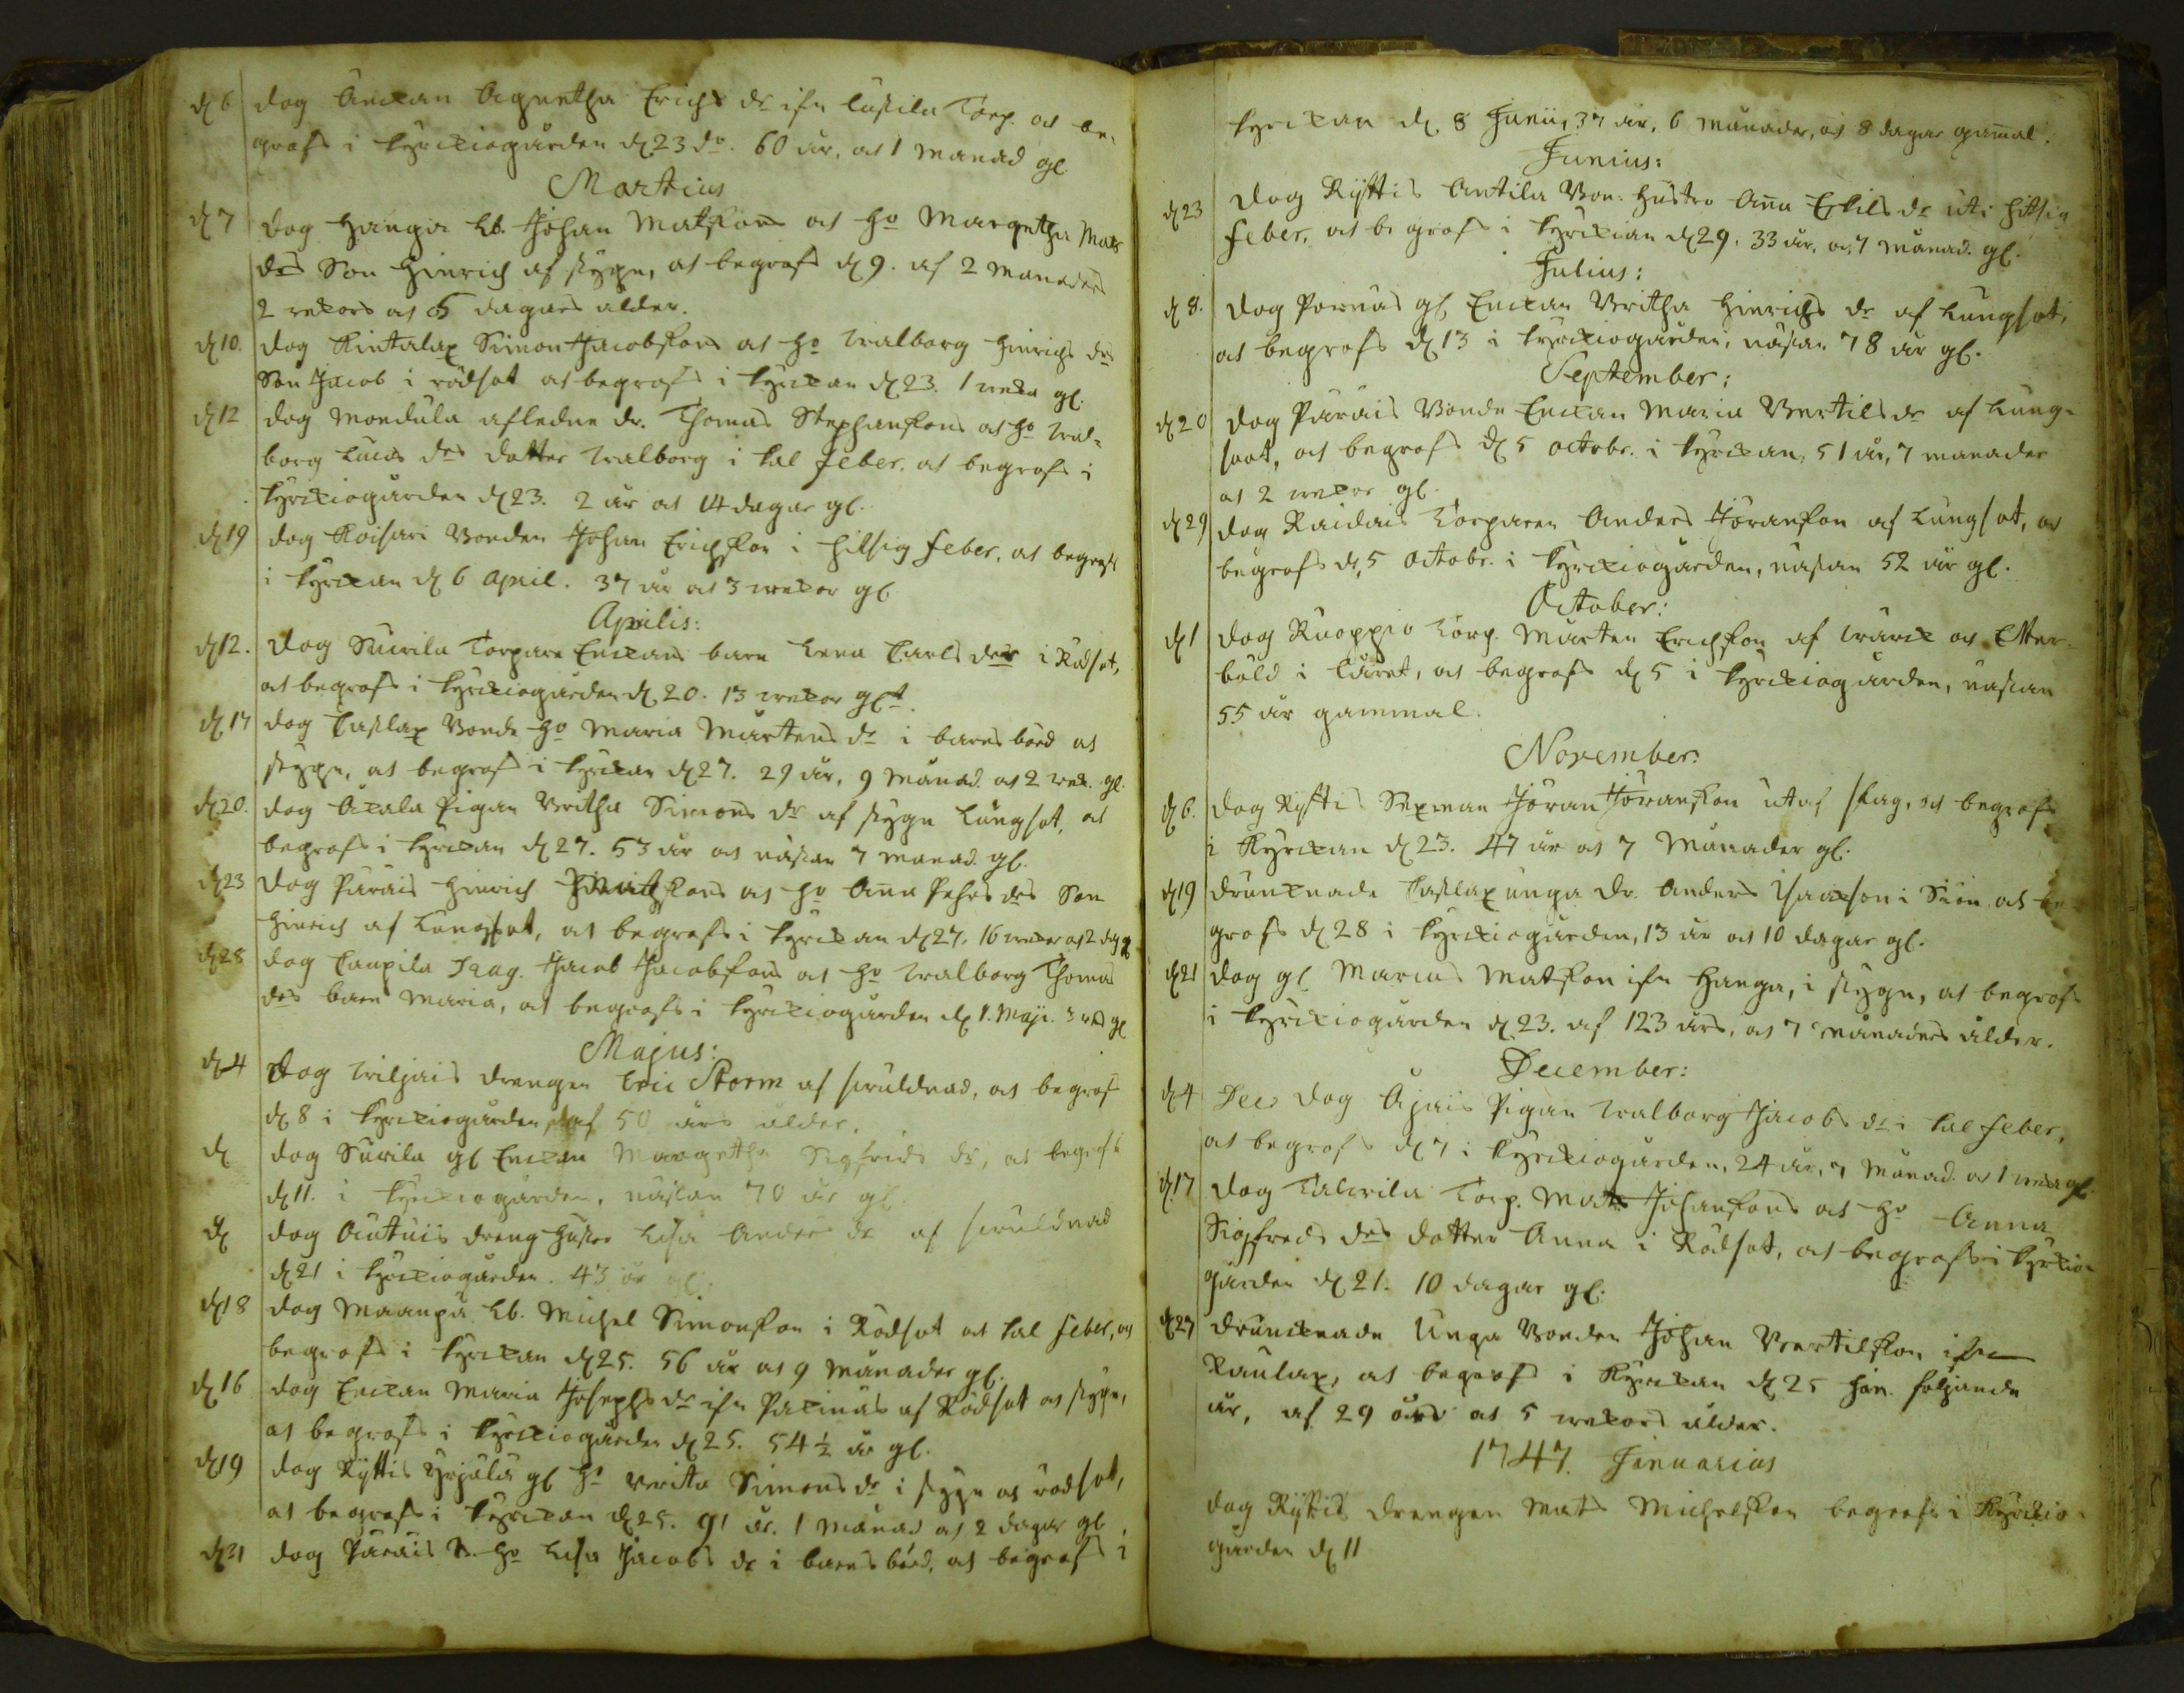 d. 6 dog Änckan Agnetha Erichs dr ifr. Lassila Torp. at be-
grofs i kyrckiogården d. 23 do. 60 år, at 1 manad gl.
Martius
d. 7 dog Hanga Lb. Johan Matsson at ho Margretha Mats
drs Son Hinrich af stygn, at begrofs d. 9. af 2 manaders
2 wekors at 5 dagars alder.
d. 10. dog Kintalax Simon Jacobssons at ho Walborg Hinrichs drs
Son Jacob i rödsot at begrofs i kyrckan d. 23. 1 weka gl.
d. 12 dog Mondula afledne dr. Thomas Stephanssons at ho Wal-
borg Lucas drs dotter Walborg i kal feber. at begrofs i
kyrckiogården d. 23. 2 år at 14 dagar gl.
d. 19 dog Koisari Bonden Johan Erichsson i hitsig feber, at begrofs
i kyrckan d. 6 April. 37 år at 3 wekor gl.
Aprilis:
d. 12. dog Suirila Torpare Enckans barn Lena Carls dr i Rödsot,
at begrofs i kyrckiogården d. 20. 13 wekor glt.
d. 17 dog Caslax Bonde ho Maria Mårtens dr i barns börd at
stygn, at begrofs i kyrckan d. 27. 29 år, 9 månad. at 2 wek. gl.
d. 20. dog Ackala Pigan Britha Simons dr af stygn Lungsot, at
begrofs i kyrckan d. 27. 53 år at nästan 7 månad. gl.
d. 23 dog Parais Hinrich Hinrichssons at ho Anna Pehrs drs Son
Hinrich af Lungsot, at begrofs i kyrckan d. 27. 16 wekor at 2 dag. gl.
d. 28 dog Caupila Jacob Jacobsons at ho Walborg Thomas
drs barn Maria, at begrofs i kyrckiogården d. 1. Maji. 3 gl
Majus:
d. 4 dog Wiljais drengen Eric Storm af swuldnad, at begrofs
d. 8 i kyrckiogården, af 50 års alder.
d. dog Suirila gl Enckan Margretha Sigfrids dr, at begrofs
d. 11. i kyrckiogården, nästan 70 år gl.
d. dog drengs hustro Lisa Anders dr af swuldnad
d. 21 i kyrckiogården. 43 år gl.
d. 18 dog Maanpä Lb. Michel Simonsson i Rödsot at kal feber, at
begrofs i kyrckan d. 25. 56 år at 9 månader gl.
d. 16 dog Enckan Maria Josephs dr ifr. Packinas af Rödsot at stygn,
at begrofs i kyrckiogården d. 25. 54 ½ år gl.
d. 19 dog Ryttis Yrjälä gl ho Brita Simons dr i stygn at rödsot,
at begrofs i kyrckan d. 25. 91 år. 1 månad at 2 dagar gl.
d. 21 dog Parais B. ho Lisa Jacobs dr i barns börd, at begrofs i
kyrckan d. 8 Junii, 37 år, 6 månader, at 8 dagar gamal.
Junius:
d. 23 dog Ryttis Antila Bon: Hustro Anna Eskils dr uti hitsig
feber. at begrofs i kyrckan d. 29. 33 år, at 7 månad. gl.
Julius:
d. 8. dog Pornas gl Enckan Britha Hinrichs dr af Lungsot,
at begrofs d. 13 i kyrckiogården, nästan 78 år gl.
September:
d. 20 dog Parais Bonde Enckan Maria Bertils dr af Lung-
soot, at begrofs d. 5 octobr. i kyrckan, 51 år, 7 manader
at 2 wekor gl.
d. 29 dog Raidais Torparen Anders Jöransson af Lungsot, at
begrofs d. 5 Octobr. i kyrckiogården, nästan 52 år gl.
October:
d. 1 dog Kuoppio Torp. Mårten Erichsson af wärck at Etter-
böld i låret, at begrofs d. 5 i kyrckiogården, nästan
55 år gammal.
November:
d. 6. dog Ryttis Sexman Jöran Jöransson utaf slag, at begrofs
i Kyrckan d. 23. 47 år at 7 Månader gl.
d. 19 drunknade Caslax unga dr. Anders Isaacsson i Siön at be-
grofs d. 28 i kyrckiogården, 13 år at 10 dagar gl.
d. 21 dog gl Marcus Matsson ifr. Hanga, i stygn, at begrofs
i kyrckiogården d. 23. af 123 års, at 7 månaders ålder.
December:
d. 4 Dec dog Äjais Pigan Walborg Jacobs dr i kal feber,
at begrofs d. 7 i kyrckiogården, 24 år, 7 månad. at 1 weka gl.
d. 17 dog Talwila Torp. Mats Johanssons at ho Anna
Sigfreds drs dotter Anna i Rödsot, at begrofs i kyrckio-
gården d. 21. 10 dagar gl.
d. 27 drunknade Unga Bonden Johan Bertilsson ifr.
Kaulax, at begrofs i Kyrckan d. 25 Jan. följande
år, af 29 års at 5 wekors ålder.
1747. Januarius
dog Ryttis drengen Mats Michelsson begrofs i Kyrckio-
gården d. 11